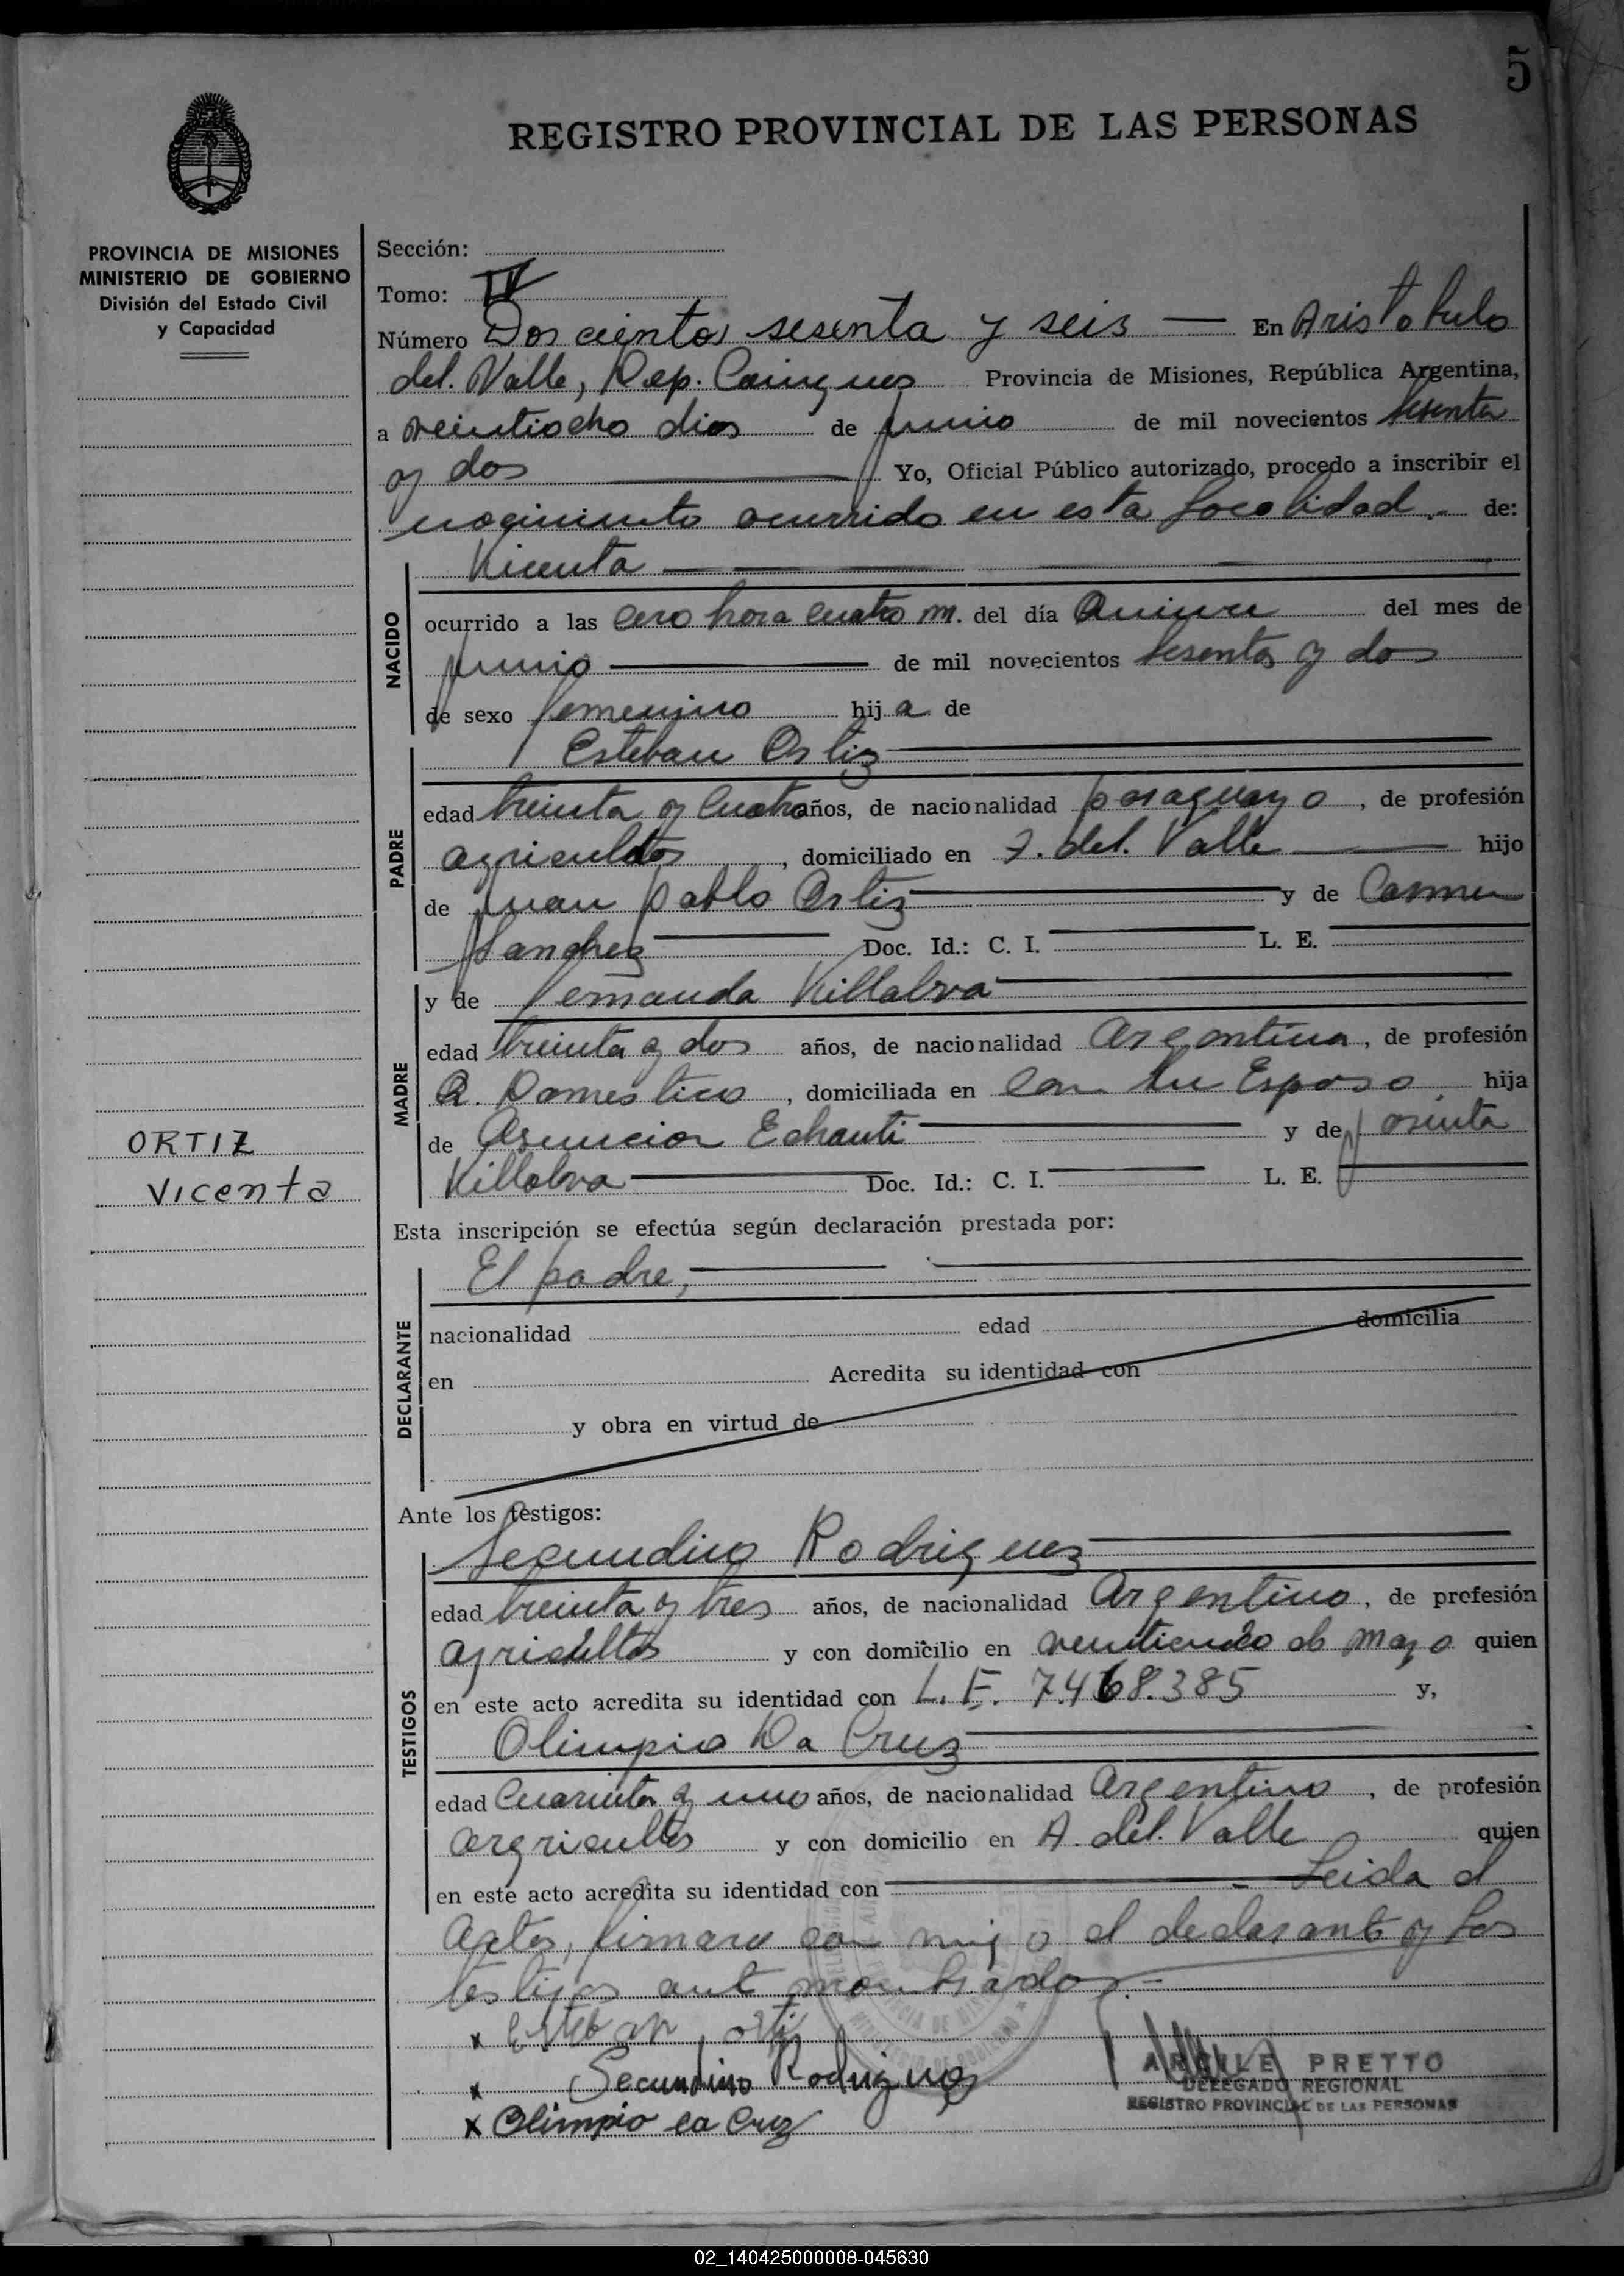 5
REGISTRO PROVINCIAL DE LAS PERSONAS
PROVINCIA DE MISIONES
MINISTERIO DE GOBIERNO
División del Estado Civil
y Capacidad
Sección:
Tomo: IV
Número Doscientos sesenta y seis — En Aristobulo
del. Valle, Dep. Cainguas Provincia de Misiones, República Argentina,
a veintiocho dias de junio de mil novecientos sesenta
y dos — Yo, Oficial Público autorizado, procedo a inscribir el
nacimiento ocurrido en esta Localidad.- de:
NACIDO
Vicenta —
ocurrido a las cero hora cuatro m. del día Quince del mes de
junio — de mil novecientos sesenta y dos
de sexo femenino hij a de
PADRE
Esteban Ortiz
edad treinta y cuatro años, de nacionalidad paraguayo, de profesión
agricultor, domiciliado en A. del. Valle — hijo
de Juan pablo Ortiz y de Carmen
Sanchez Doc. Id.: C. I. — L. E. —
MADRE
y de Fernanda Villalva
edad treinta y dos años, de nacionalidad Argentina, de profesión
Q. Domestico, domiciliada en Con su Esposo hija
de Asuncion Echauti y de
Villalva Doc. Id.: C. I. — L. E. —
ORTIZ
Vicenta
Esta inscripción se efectúa según declaración prestada por:
DECLARANTE
El padre,
nacionalidad edad domicilia
en Acredita su identidad con
y obra en virtud de
Ante los testigos:
TESTIGOS
Secundino Rodriguez
edad treinta y tres años, de nacionalidad Argentino, de profesión
agricultor y con domicilio en veinticinco de mayo quien
en este acto acredita su identidad con L. E. 7.468.385 y,
Olimpio Da Cruz
edad Cuarenta y uno años, de nacionalidad Argentino, de profesión
agricultor y con domicilio en A. del. Valle quien
en este acto acredita su identidad con — Leida el
Acta, firmara con migo el declarante y los
testigos ant mombrados.-
x Esteban ortiz
x Secundino Rodriguez
x Olimpio Da Cruz
ARGILE PRETTO
DELEGADO REGIONAL
REGISTRO PROVINCIAL DE LAS PERSONAS
02_140425000008-045630